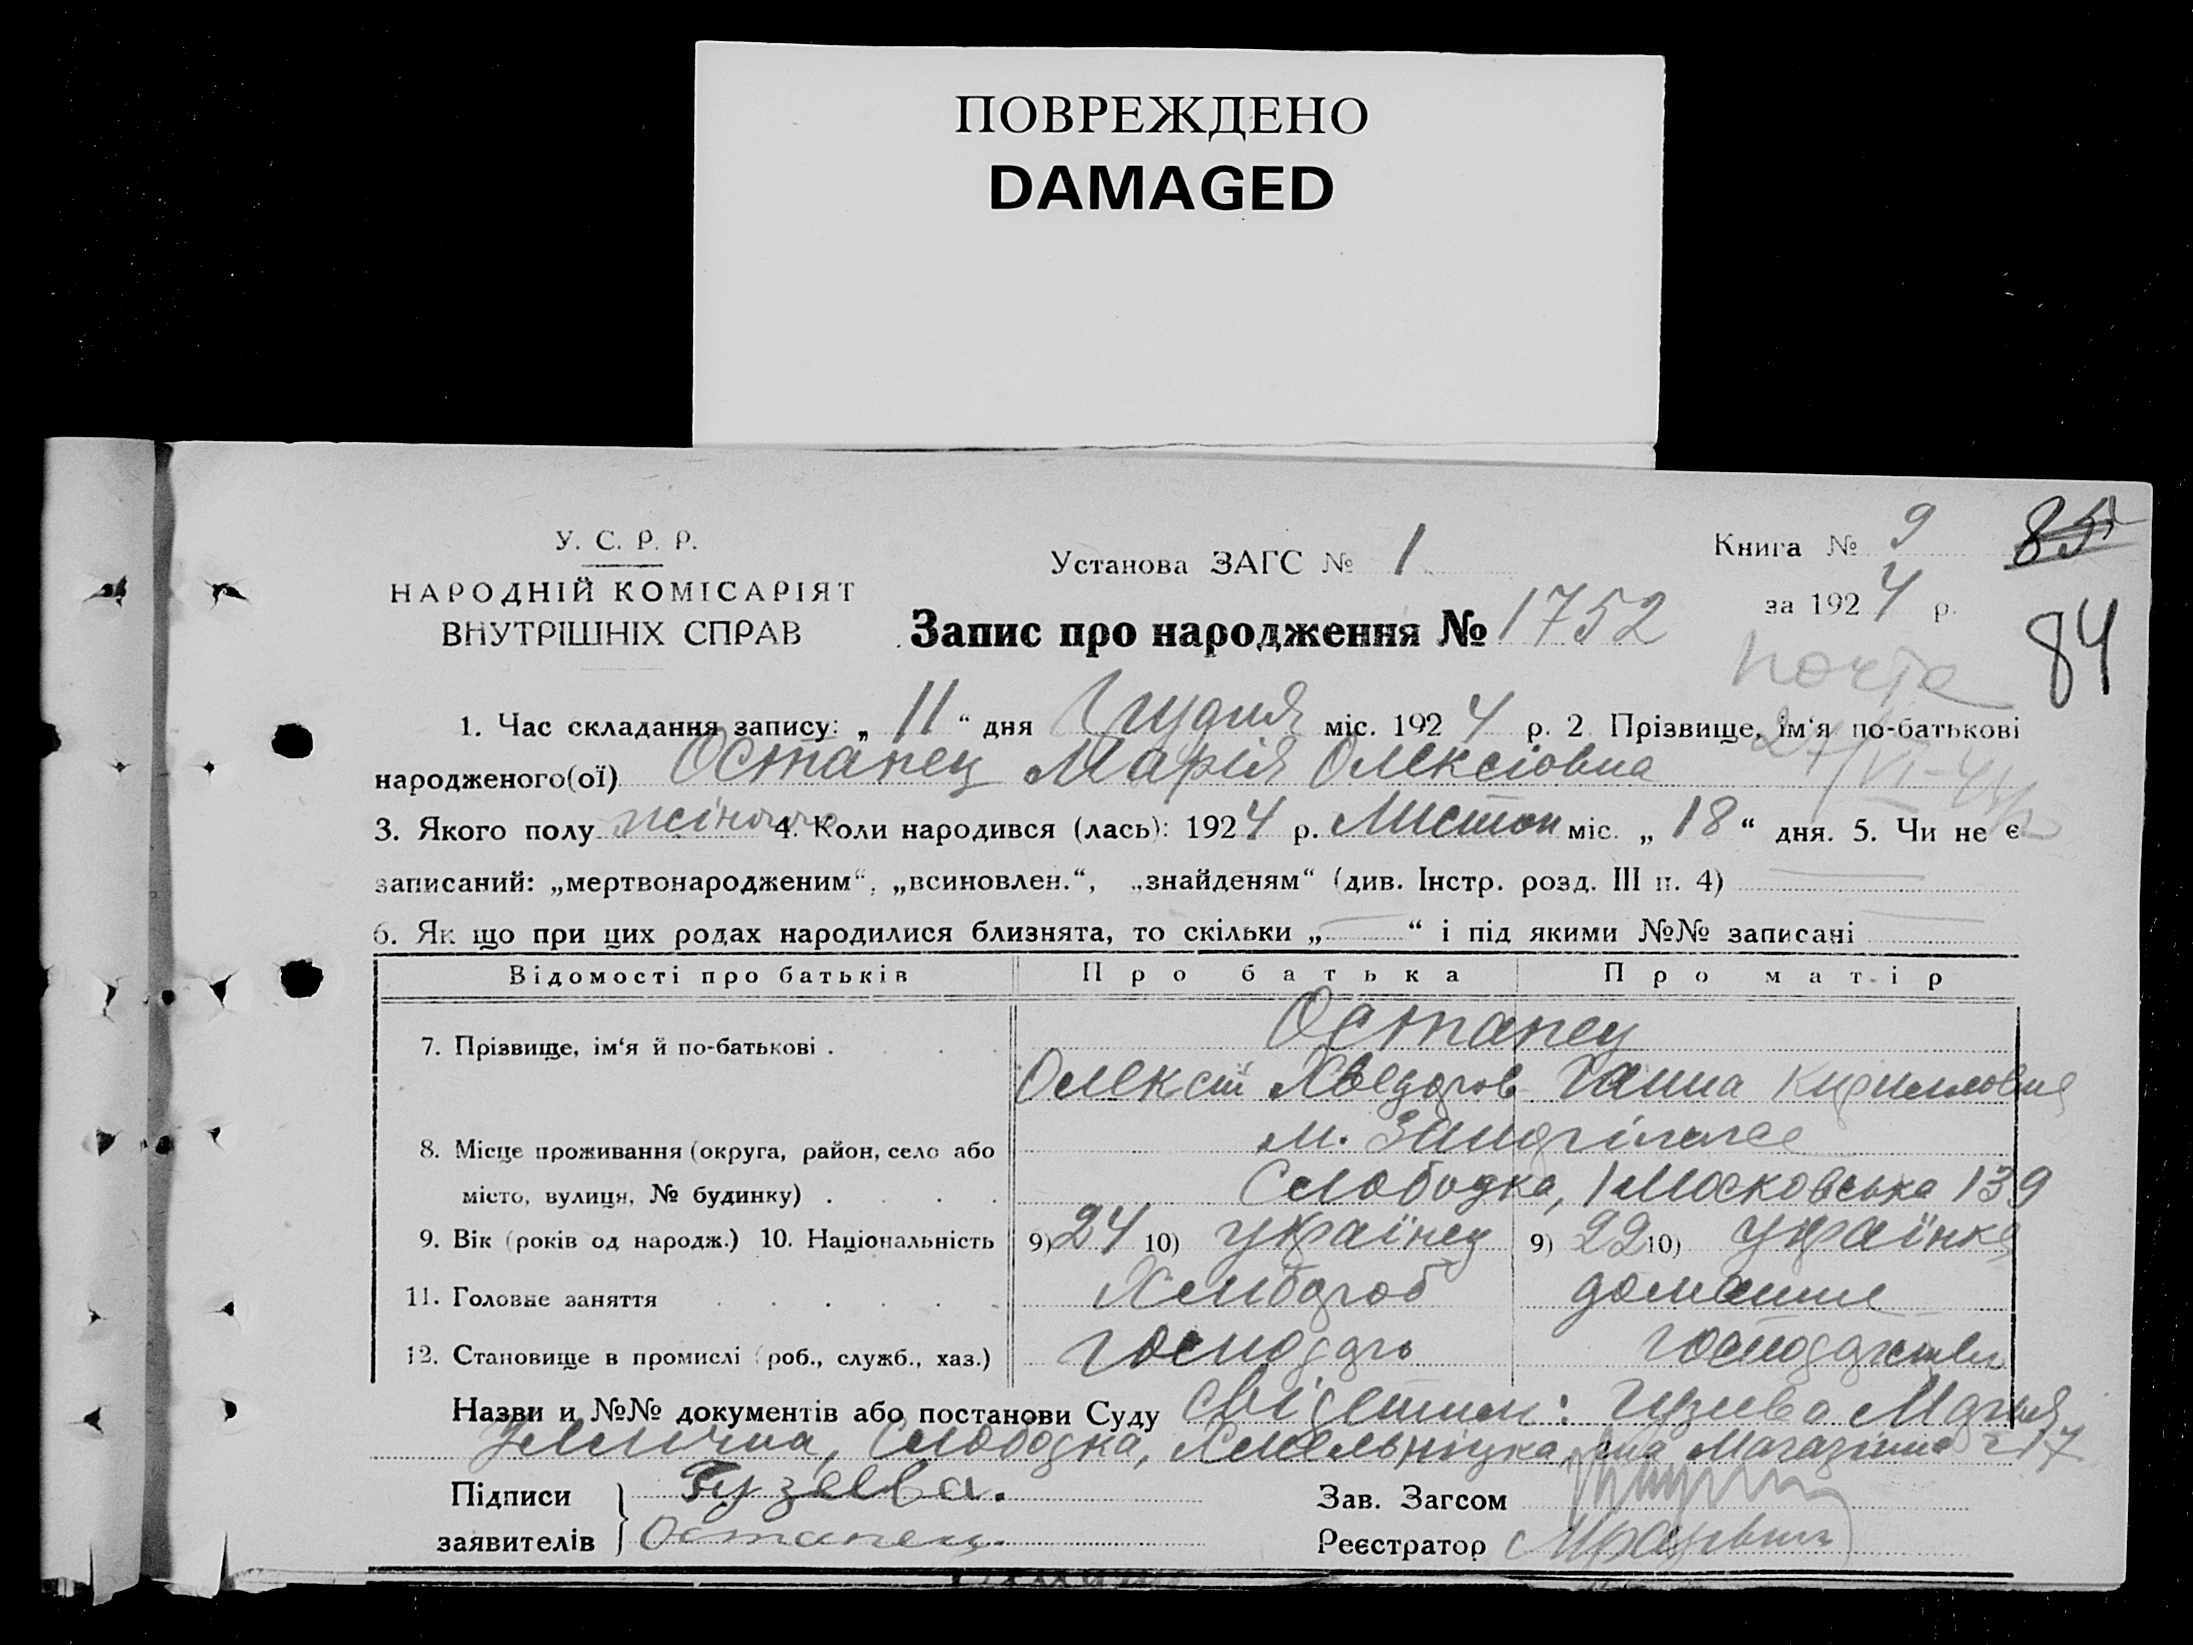 ПОВРЕЖДЕНО
DAMAGED
У. С. Р. Р.
НАРОДНІЙ КОМІСАРІЯТ
ВНУТРІШНІХ СПРАВ
Установа ЗАГС № 1
Книга № 9
85
за 1924 р.
84
Запис про народження № 1752
почта
1. Час складання запису: „ 11 “ дня Грудня міс. 1924 р. 2. Прізвище, ім‘я по-батькові
народженого(ої) Остапец Марія Олексіовна
3. Якого полу жіночо 4. Коли народився (лась): 1924 р. Листоп міс. „ 18 “ дня. 5. Чи не є
записаний: „мертвонародженим“, „всиновлен.“, „знайденям“ (див. Інстр. розд. III п. 4)
6. Як що при цих родах народилися близнята, то скільки „ — “ і під якими №№ записані
Відомості про батьків Про батька Про матір
7. Прізвище, ім‘я й по-батькові . Остапец
Олексій Хведоров Ганна Кирилловна
8. Місце проживання (округа, район, село або м.
місто, вулиця, № будинку) . Слободка, 1 Московська 139
9. Вік (років од народж.) 10. Національність 9) 24 10) українец 9) 22 10) українка
11. Головне заняття Хлібороб домашнє
12. Становище в промислі (роб., служб., хаз.) господарь
Назви и №№ документів або постанови Суду
Слободка, 17
Підписи Гузеева. Зав. Загсом
заявителів Остапец. Реєстратор